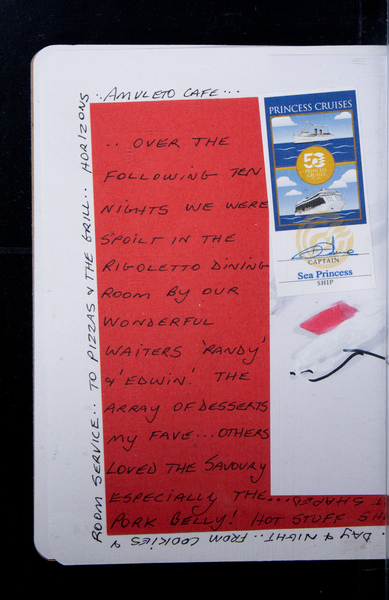 ..AMULETO CAFE...
.. OVER THE
FOLLOWING TEN
NIGHTS WE WERE
SPOILT IN THE
RIGOLETTO DINING
ROOM BY OUR
WONDERFUL
WAITERS 'RANDY'
& 'EDWIN'. THE
ARRAY OF DESSERTS
MY FAVE...OTHERS
LOVED THE SAVOURY
ESPECIALLY THE....
PORK BELLY! HOT STUFF
IT SHAPED
.. DAY & NIGHT.. FROM COOKIES &
ROOM SERVICE.. TO PIZZAS & THE GRILL.. HORIZONS
PRINCESS CRUISES
50
PRINCESS
CRUISES
CAPTAIN
Sea Princess
SHIP